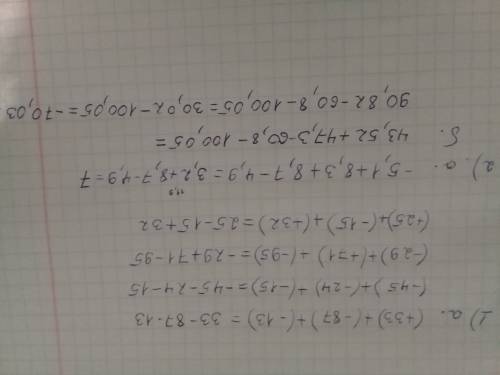 1) a. (+33)+(-87)+(-13) = 33-87-13
(-45)+(-24)+(-15)=-45-24-15
(-29)+(+71)+(-95)=-29+71-95
(+25)+(-15)+(+32)=25-15+32
2) a. -5,1+8,3+8,7-4,9=3,2+8,7-4,9=7
11,9
б. 43,52+47,3-60,8-100,05=
90,82-60,8-100,05=30,02-100,05=-70,03